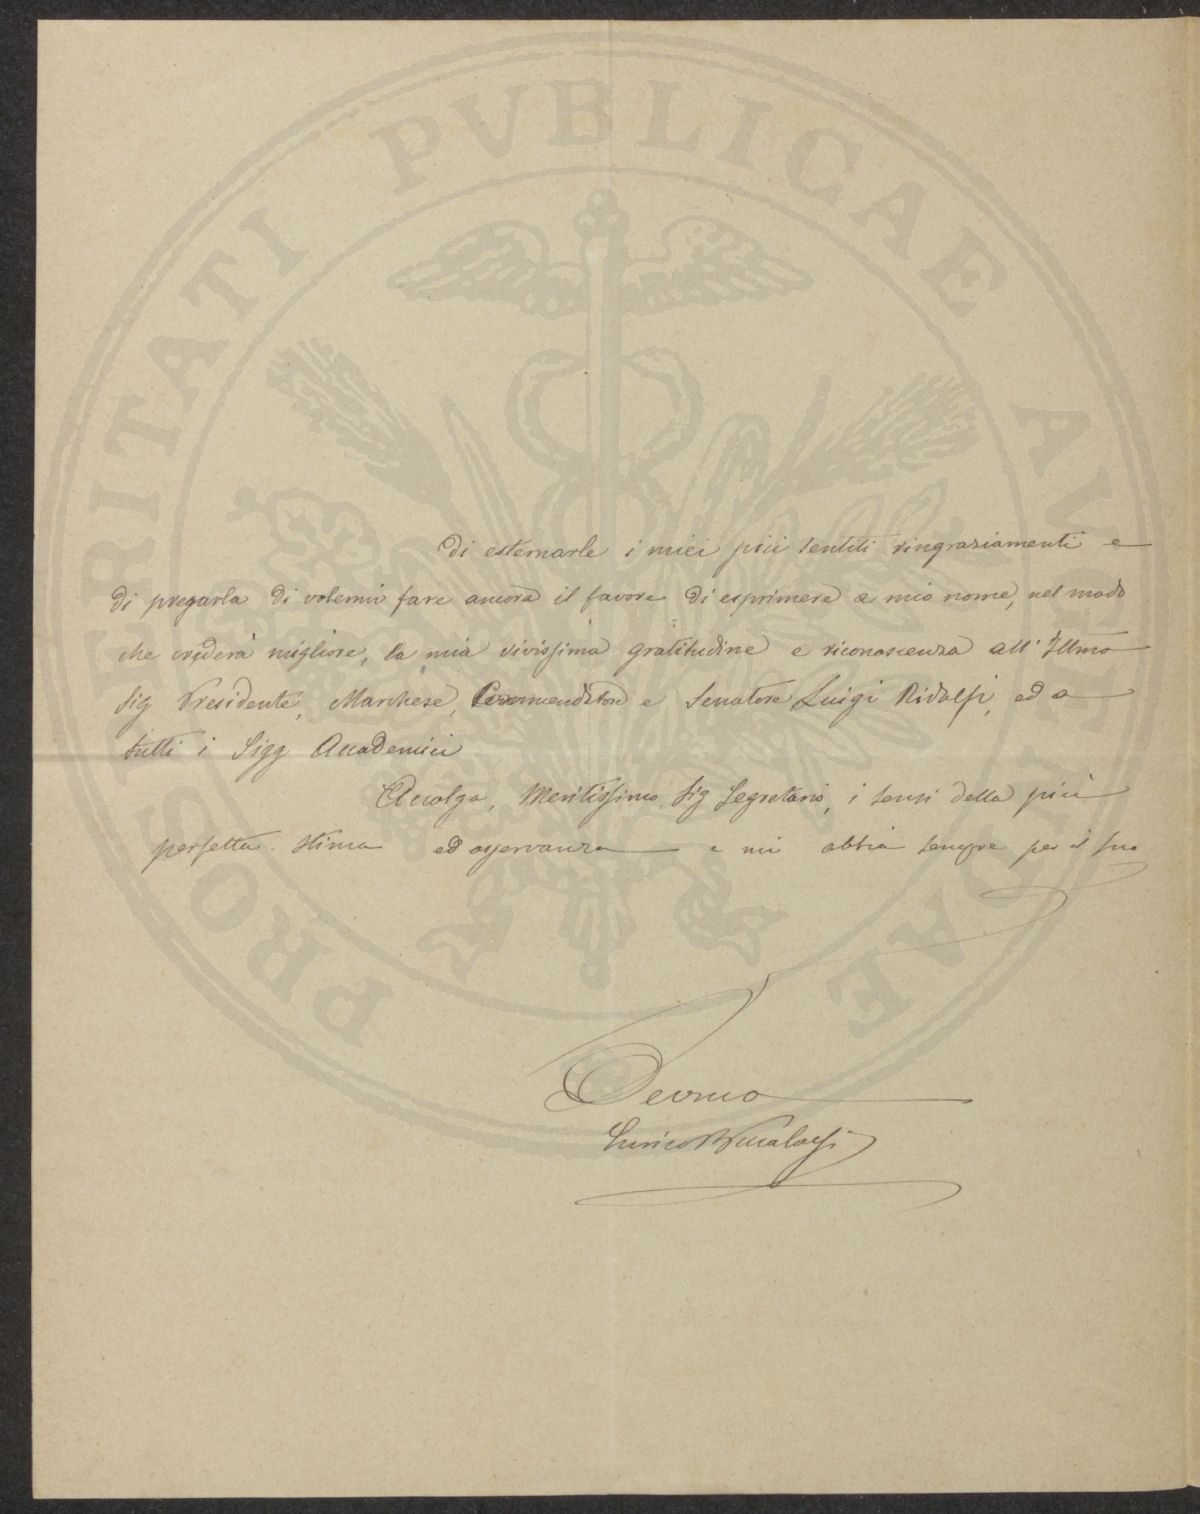 di esternarle i miei più sentiti ringraziamenti e
di pregarla di volermi fare ancora il favore di esprimere a mio nome, nel modo
che crederà migliore, la mia vivissima gratitudine e riconoscenza all' Illmo
Sig Presidente, Marchese, Commendatore e Senatore Luigi Ridolfi, ed a
tutti i Sigg Accademici
Accolga, Meritissimo Sig Segretario, i sensi della più
perfetta stima ed osservanza e mi abbia sempre per il suo
Devmo
Enrico
PROSPERITATI PVBLICAE AVGENDAE